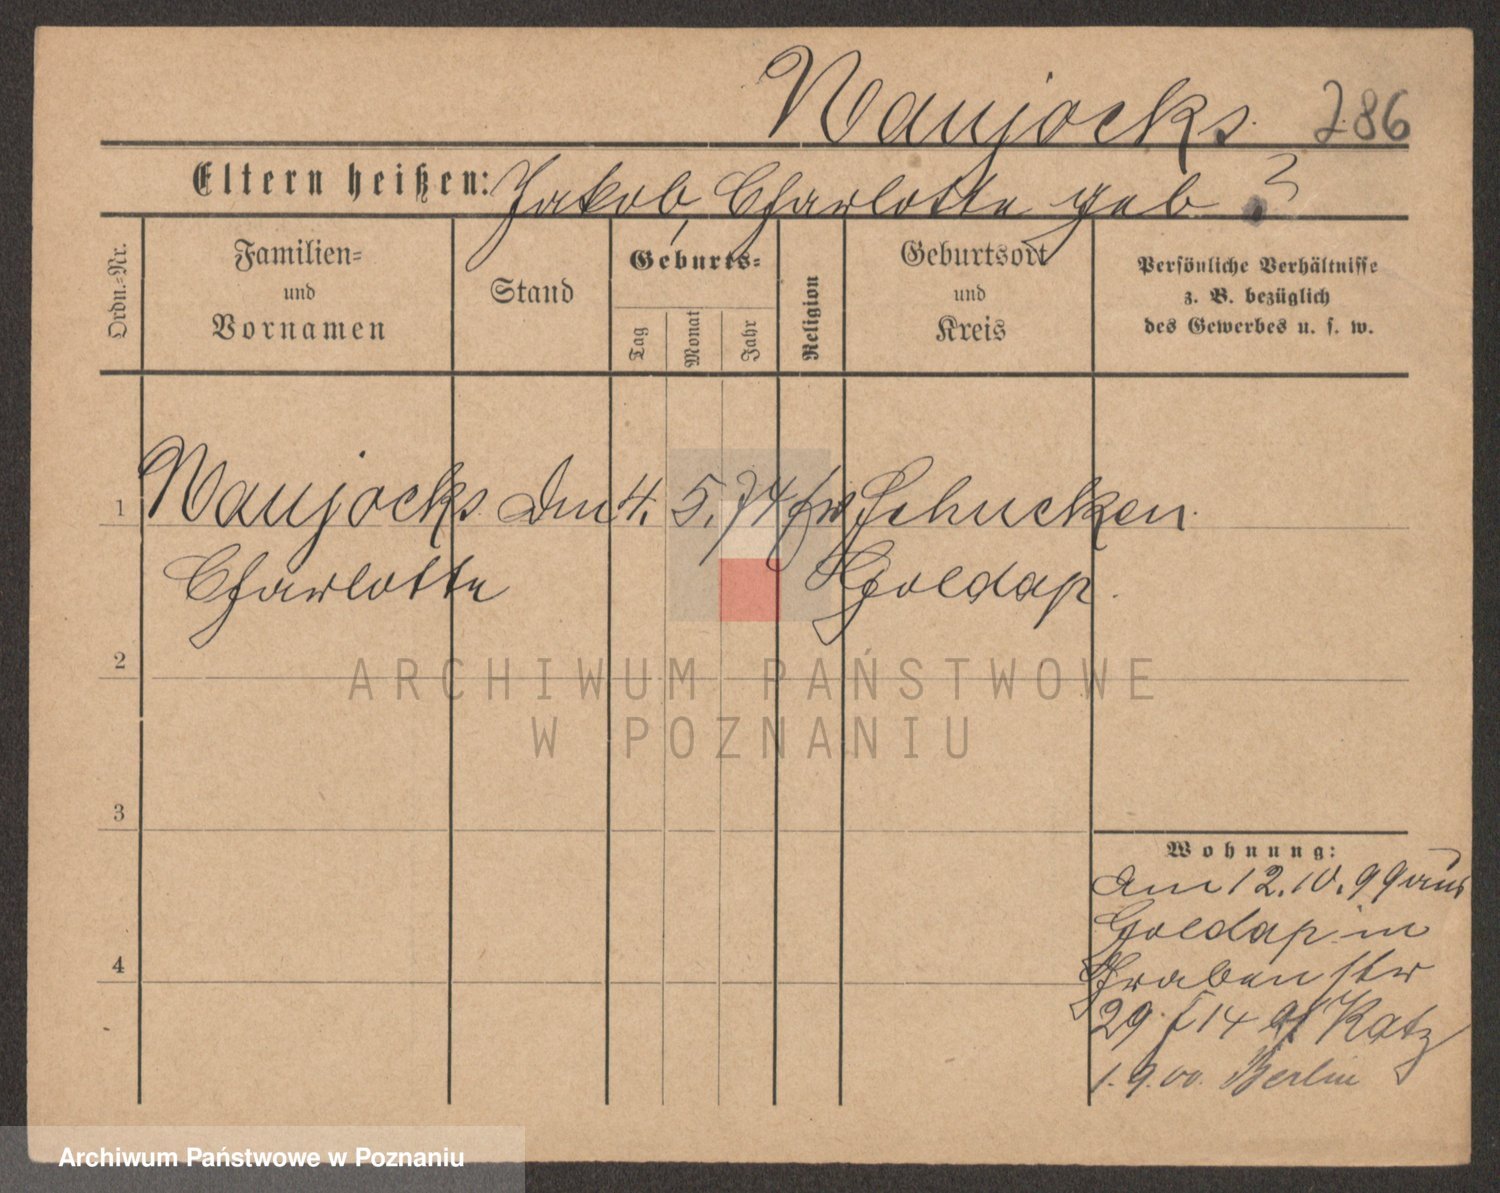 Naujocks. 286
Eltern heißen: Jakob, Charlotte geb ?
Ordn.-Nr.
Familien-
und
Vornamen
Stand
Geburts-
Tag
Monat
Jahr
Religion
Geburtsort
und
Kreis
Persönliche Verhältnisse
z. B. bezüglich
des Gewerbes u. s. w.
1 Naujocks 4. 5. 74 Schucken
Charlotte Goldap.
2
ARCHIWUM PAŃSTWOWE
W POZNANIU
3
Wohnung:
am 12.10.99 aus
Goldap in
4
Grabenstr
29 I 14 Katz
1.9.00. Berlin
Archiwum Państwowe w Poznaniu